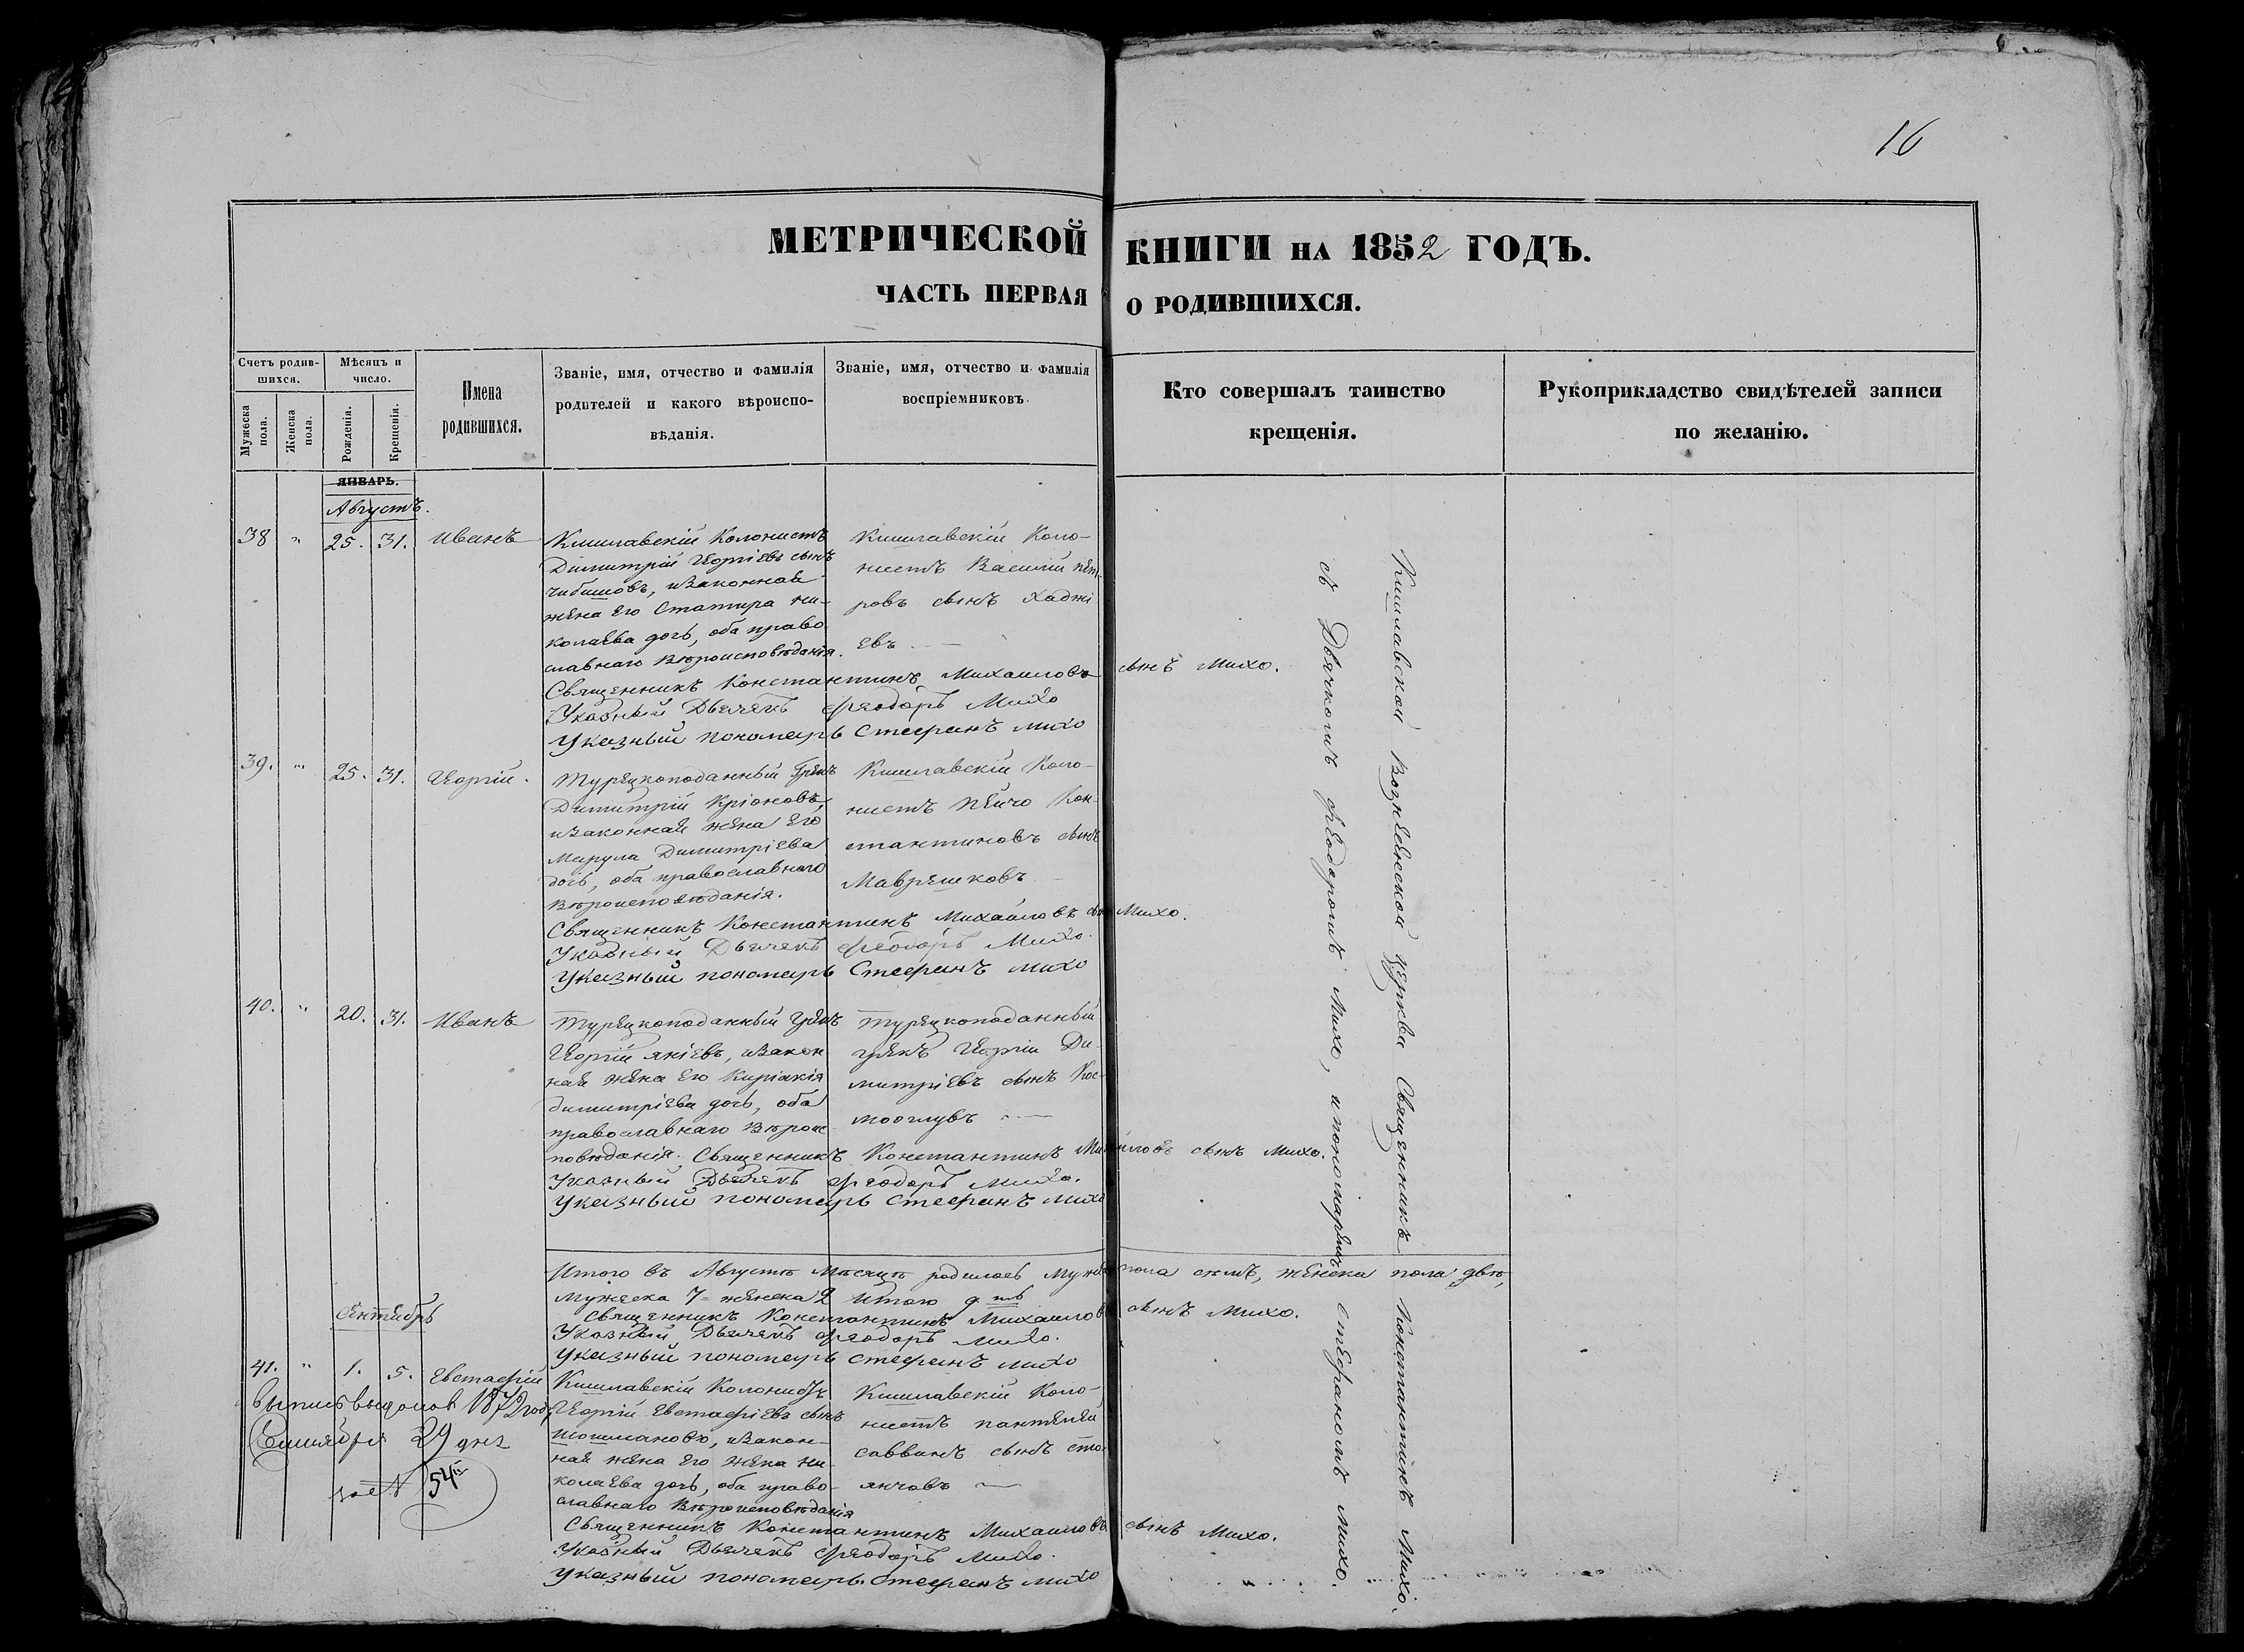 16
МЕТРИЧЕСКОЙ КНИГИ НА 1852 ГОДЪ.
ЧАСТЬ ПЕРВАЯ О РОДИВШИХСЯ.
Счетъ родив-
шихся.
Мужеска пола.
Женска пола.
Мѣсяцъ и
число.
Рожденія.
Крещенія.
Имена
родившихся.
Званіе, имя, отчество и фамилія
родителей и какого вѣроиспо-
вѣданія.
Званіе, имя, отчество и фамилія
воспріемниковъ.
Кто совершалъ таинство
крещенія.
Рукоприкладство свидѣтелей записи
по желанію.
ЯНВАРЬ.
Августъ.
38 " 25. 31. Иванъ
Кишлавскій Колонистъ
Димитрій Георгіевъ сынъ
Чибишовъ, изаконная
жена его Статира Ни-
колаева дочь, оба право
славнаго вѣроисповѣданія.
Кишлавскій Коло-
нистъ Василій Пет-
ровъ сынъ Хаджі
евъ.
Священникъ Константинъ Михаиловъ сынъ Михо.
Указный Дьячекъ Феодоръ Михо
Указный пономарь Стефанъ Михо
39. " 25. 31. Георгій.
Турецкоподанный Грекъ
Димитрій Кріоновъ,
изаконная жена его
Марула Димитріева
дочь, оба православнаго
вѣроисповѣданія.
Кишлавскій Коло-
нистъ Пейчо Кон-
стантиновъ сынъ
Маврешковъ
Священникъ Константинъ Михаиловъ сынъ Михо.
Указный Дьячекъ Феодоръ Михо.
Указный пономарь Стефанъ Михо
40. " 20. 31. Иванъ
Турецкоподанный Грекъ
Георгій Яніевъ, изакон
ная жена его Киріакія
Димитріева дочь, оба
православнаго вѣроис
повѣданія.
Турецкоподанный
грекъ Георгіи Ди-
митріевъ сынъ Кос-
моглувъ
Священникъ Константинъ Михаиловъ сынъ Михо.
Указный Дьячекъ Феодоръ Михо.
Указный пономарь Стефанъ Михо
Итого въ Августѣ Мѣсяцѣ родилось Мужеска пола семь, женска пола двѣ,
Мужеска 7 женска 2 Итого 9ть
Священникъ Константинъ Михаиловъ сынъ Михо.
Указный Дьячекъ Феодоръ Михо.
Указный пономарь Стефанъ Михо
Сентябрь
41. " 1. 5. Евстафій
Кишлавскій Колонистъ
Георгій Евстафіевъ сынъ
Шошмановъ, изакон-
ная жена его Жека Ни
колаева дочь, оба право-
славнаго вѣроисповѣданія
Кишлавскій Коло-
нистъ Пантелей
Саввинъ сынъ Сто-
янчовъ
Священникъ Константинъ Михаиловъ сынъ Михо.
Указный Дьячекъ Феодоръ Михо.
Указный пономарь Стефанъ Михо
1872 года
29 дня
за № 54
Кишлавской Вознесенской церкви Священникъ Константинъ Михо,
съ Дьячкомъ Феодоромъ Михо, и пономаремъ Стефаномъ Михо.